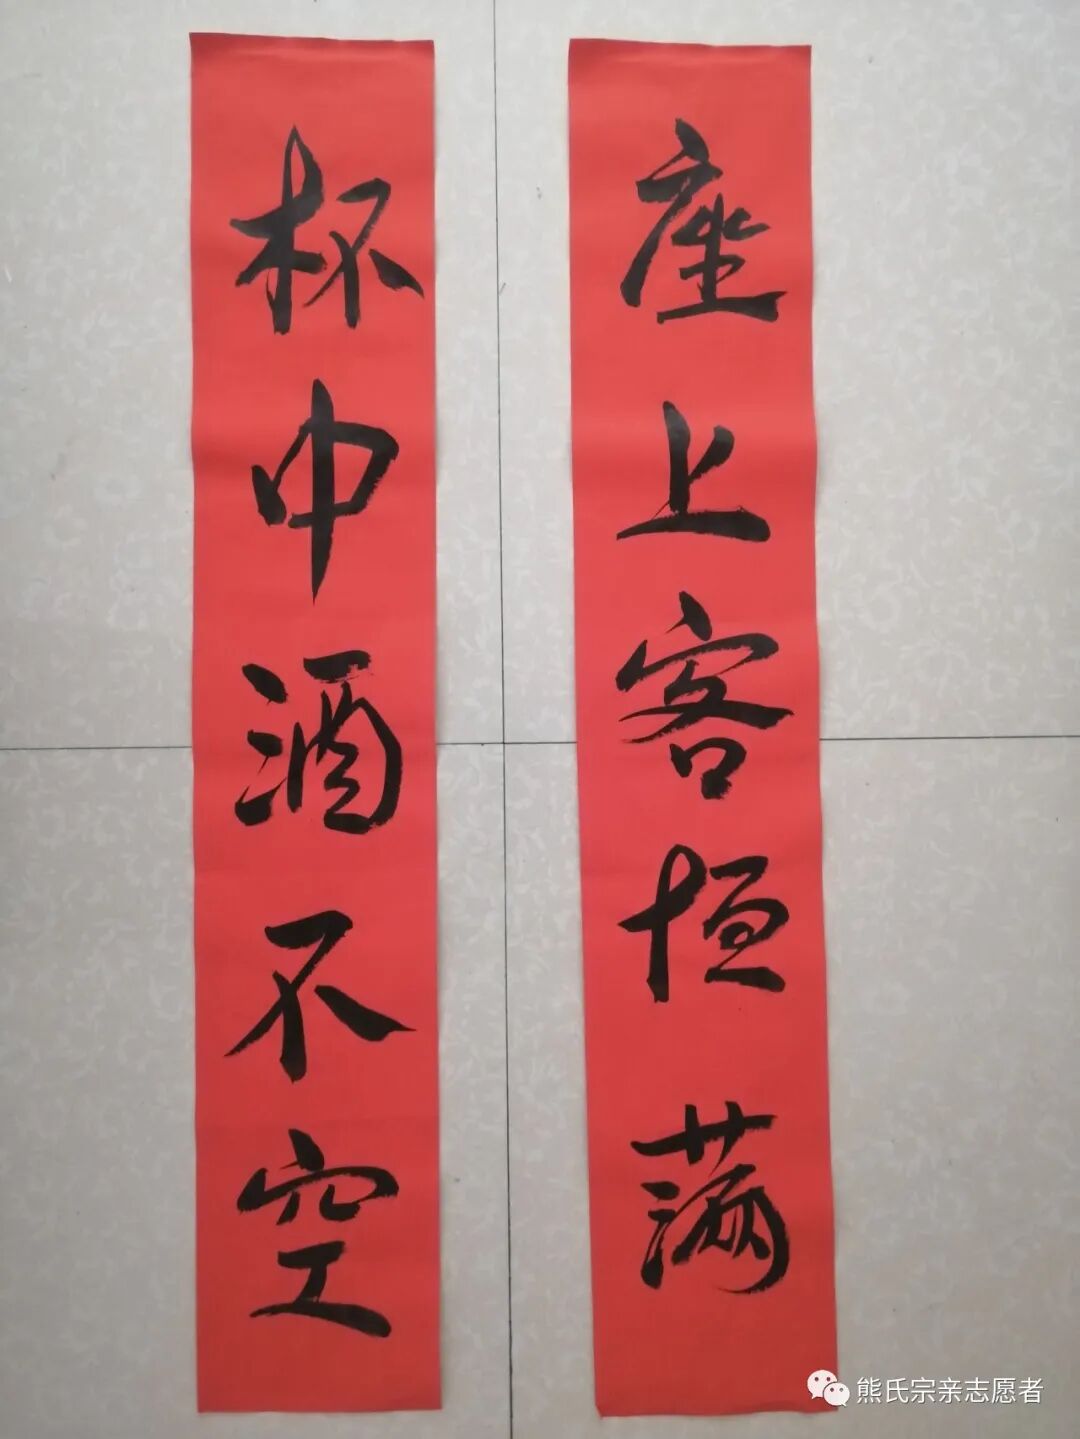 座上客恒满
杯中酒不空
熊氏宗亲志愿者